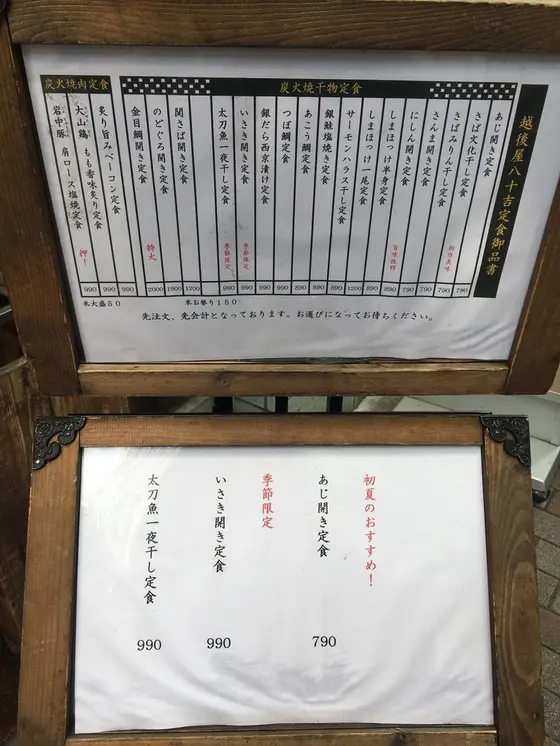 越後屋八十吉定食御品書
炭火焼干物定食
あじ開き定食 790
さば文化干し定食 790
さばみりん干し定食 790
さんま開き定食 790
にしん開き定食 790
しまほっけ半身定食 旨味抜群 890
しまほっけ一尾定食
サーモンハラス干し定食
銀鮭塩焼き定食 890
あこう鯛定食 890
つぼ鯛定食 990
銀だら西京漬け定食 990
いさき開き定食 季節限定 990
太刀魚一夜干し定食 季節限定 990
関さば開き定食
のどぐろ開き定食 特大 2000
金目鯛開き定食
炭火焼肉定食
炙り旨みベーコン定食 990
大山鶏 もも香味炙り定食 990
岩中豚 肩ロース塩焼定食 押! 990
米大盛50
米お替り150
先注文、先会計となっております。お選びになってお待ちください。
初夏のおすすめ!
あじ開き定食 790
季節限定
いさき開き定食 990
太刀魚一夜干し定食 990